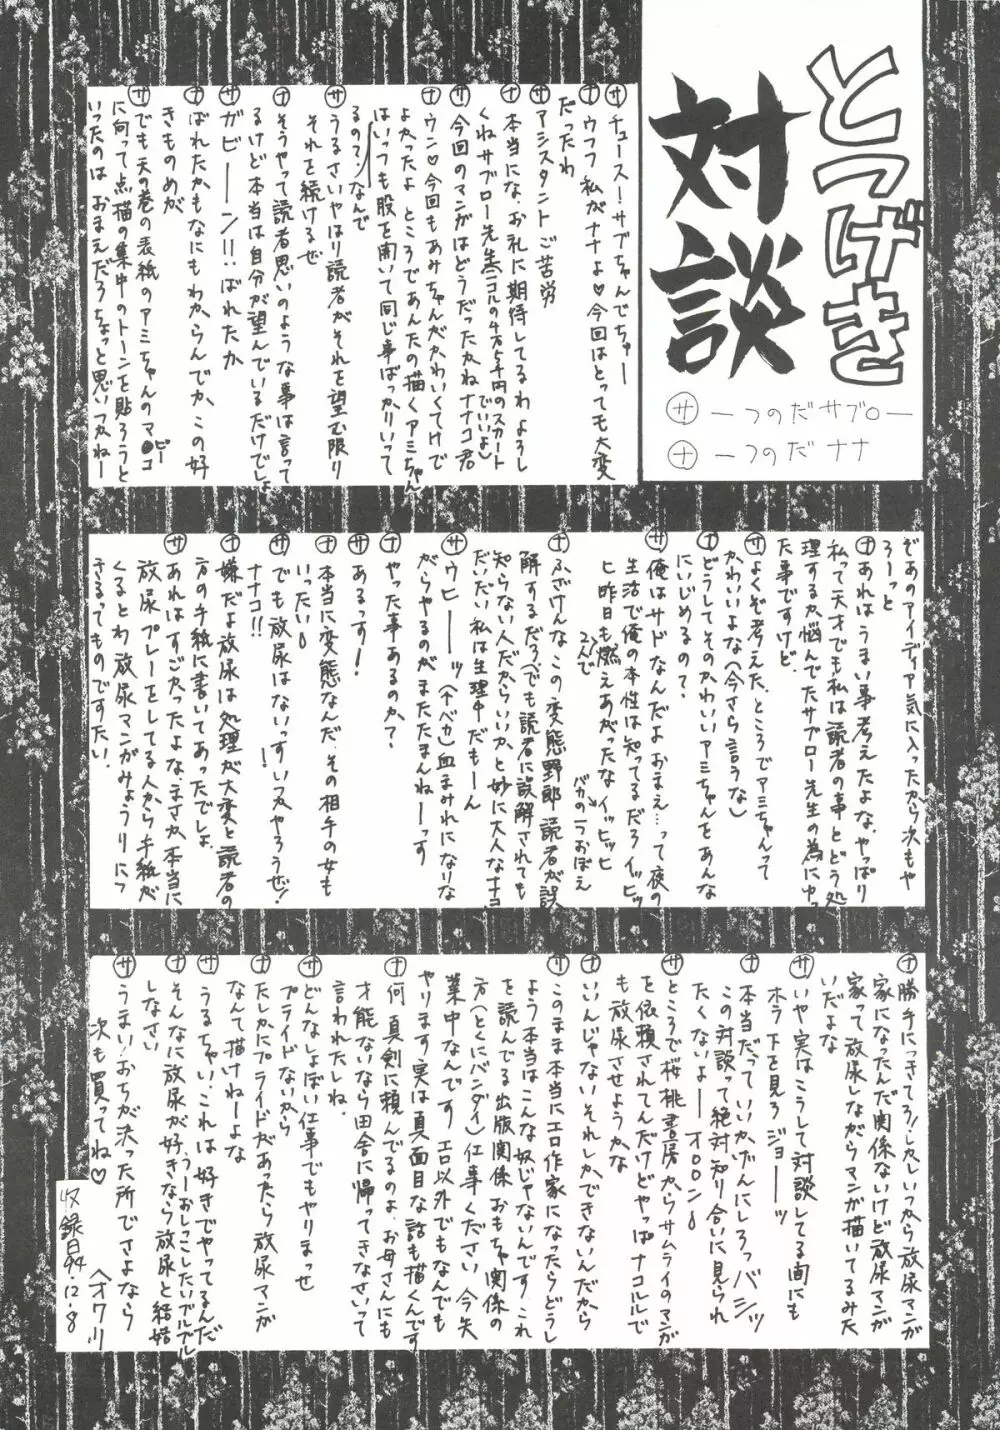 とつげき
対談
サ ーつのだサブロー
ナ ーつのだナナ
サ チュースーサブちゃんでちゅー
ナ ウフフ 私がナナよ♡今回はとっても大変
だったわ
サ アシスタントご苦労
ナ 本当にな、お礼に期待してるわ よろし
くねサブロー先生(ニコルの4万5千円のスカート
でいいよ)
サ 今回のマンガはどうだったかね ナナコ君
ナ ウン♡今回もあみちゃんがかわいくてけで
よかったよ ところであんたの描くアミちゃん
はいっつも股を開いて同じ事ばっかりいって
るのて なんで
サ うるさいやはり読者がそれを望む限り
それを続けるぜ
ナ そうやって読者思いのような事は言って
るけど本当は自分が望んでいるだけでしょ
サ ガビーーン!!ばれたか
ナ ばれたかもなにもわからんでか、この好
きものめが
サ でも天の巻の表紙のアミちゃんのマ●コ
ピー
に向って点描の集中のトーンを貼ろうと
いったのは おまえだろちょっと思いつかねー
ぞあのアイディア気に入ったから次もや
ろーっと
ナ あれはうまい事考えたよな、やっぱり
私って天才でも私は読者の事とどう処
理するか悩んでたサブロー先生の為にやっ
た事ですけど、
サ よくぞ考えた、ところでアミちゃんって
かわいいよな(今さら言うな)
ナ どうしてそのかわいいアミちゃんをあんな
にいじめるの?
サ 俺はサドなんだよ おまえ…って夜の
生活で俺の本性は知ってるだろイッヒッ
ヒ昨日も燃えあがったなイッヒッヒ
2人で
バカの一つおぼえ
ナ ふざけんな この変態野郎 読者が誤
解するだろ(でも読者に誤解されても
知らない人だからいいか、と妙に大人なナナコ)
だいだい私は生理中だもーん
サ ウヒーーッ(←バカ)血まみれになりな
がらやるのがまたたまんねーっす
ナ やった事あるのか?
サ あるっす!
ナ 本当に変態なんだ、その相手の女も
いったい。
サ でも放尿はないっす いつかやろうぜ!
ナナコ!!
ナ 嫌だよ放尿は処理が大変と読者の
方の手紙に書いてあったでしょ
サ あれはすごかったよな、まさか本当に
放尿プレーをしてる人から手紙が
くるとわ 放尿マンガみょうりにつ
きるってものですたい、
ナ 勝手につきてろ!しかしいつから放尿マンガ
家になったんだ 関係ないけど放尿マンガ
家って放尿しながらマンガ描いてるみた
いだよな
サ いや実はこうして対談してる間にも
ホラ下を見ろ ジョーーッ
ナ 本当だっていいかげんにしろっバシッ
この対談って絶対知り合いに見られ
たくないよーーオロロン。
サ ところで桜桃書房からサムライのマンガ
を依頼されてんだけどやっぱナコルルで
も放尿させようかな
ナ いいんじゃない それしかできないんだから
サ このまま本当にエロ作家になったらどうし
よう本当はこんな奴じゃないんです、これ
を読んでる出版関係 おもちゃ関係の
方(とくにバンダイ)仕事ください、今失
業中なんです エロ以外でもなんでも
やります 実は真面目な話も描くんです
ナ 何、真剣に頼んでるのよ、お母さんにも
才能ないなら田舎に帰ってきなさいって
言われたしね、
サ どんなしょぼい仕事でもやりまっせ
プライドないから
ナ たしかにプライドがあったら放尿マンガ
なんて描けねーよな
サ うるちゃい、これは好きでやってるんだ
うーおしっこしたいブルブル
ナ そんなに放尿が好きなら放尿と結婚
しなさい
サ うまい!おちが決った所でさよなら
次も買ってね♡
〈オワリ〉
収録日94.12.8